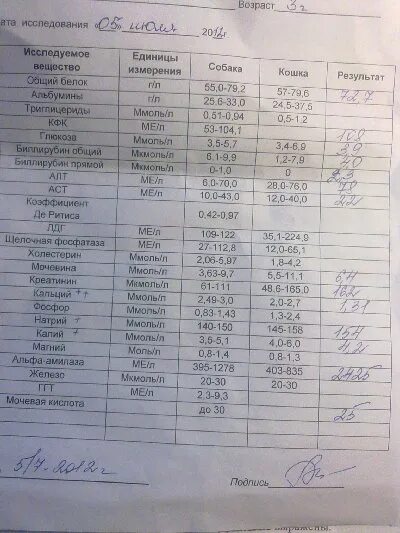 Возраст 3 г
ата исследования «05» июля 2012г
Исследуемое вещество Единицы измерения Собака Кошка Результат
Общий белок г/л 55,0-79,2 57-79,6 72,7
Альбумины г/л 25,6-33,0 24,5-37,5
Триглицериды Ммоль/л 0,51-0,94 0,5-1,2
КФК МЕ/л 53-104,1
Глюкоза Ммоль/л 3,5-5,7 3,4-6,9
Биллирубин общий Мкмоль/л 6,1-9,9 1,2-7,9
Биллирубин прямой Мкмоль/л 0-1,0 0
АЛТ МЕ/л 6,0-70,0 28,0-76,0
АСТ МЕ/л 10,0-43,0 12,0-40,0 22
Коэффициент
Де Ритиса 0,42-0,97
ЛДГ МЕ/л 109-122 35,1-224,9
Щелочная фосфатаза МЕ/л 27-112,8 12,0-65,1
Холестерин Ммоль/л 2,06-5,97 1,8-4,2
Мочевина Ммоль/л 3,63-9,7 5,5-11,1
Креатинин Мкмоль/л 61-111 48,6-165,0 162
Кальций ++ Ммоль/л 2,49-3,0 2,0-2,7
Фосфор Ммоль/л 0,83-1,43 1,3-2,4
Натрий + Ммоль/л 140-150 145-158 154
Калий + Ммоль/л 3,5-5,1 4,0-6,0
Магний Моль/л 0,8-1,4 0,8-1,3
Альфа-амилаза МЕ/л 395-1278 403-835 2425
Железо Мкмоль/л 20-30 20-30
ГГТ МЕ/л 2,3-9,3
Мочевая кислота до 30 25
5/7-2012г Подпись
выражены.